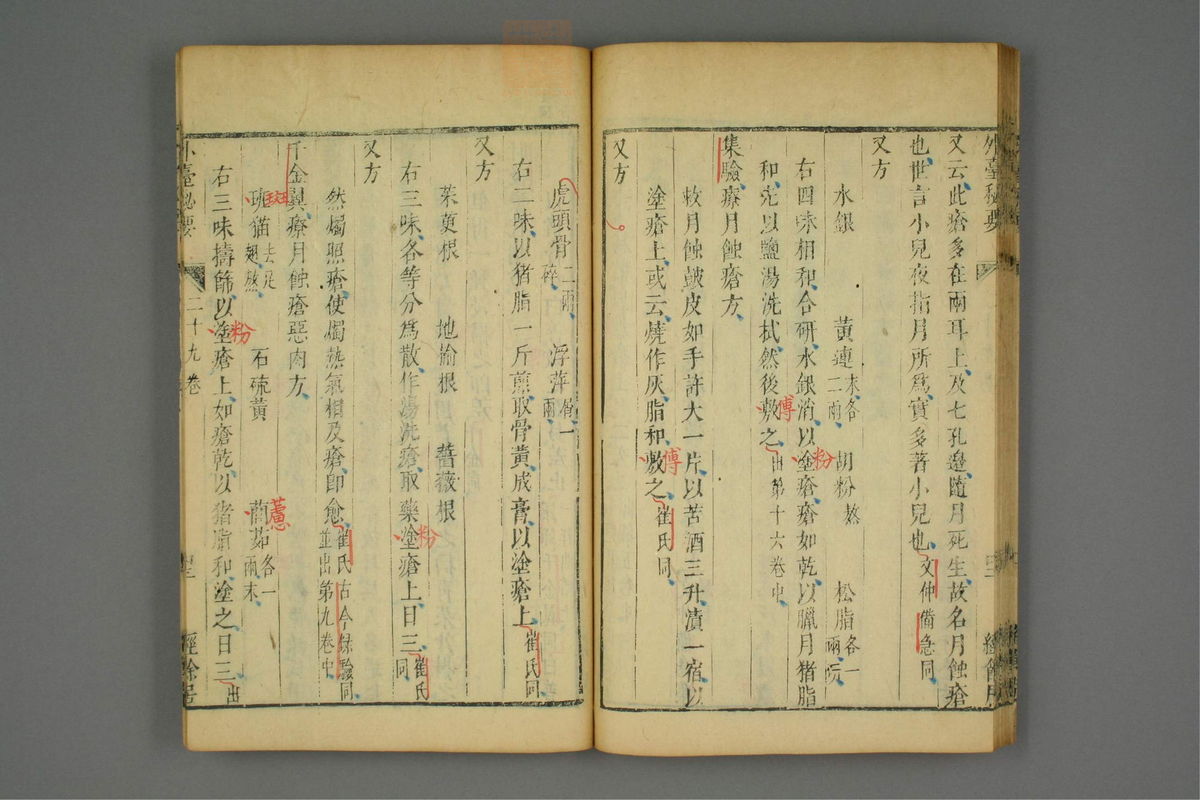 外臺祕要
又云此瘡多在兩耳上及七孔邊隨月死生故名月蝕瘡
也世言小兒夜指月所爲實多著小兒也文仲備急同
又方
水銀 黃連末各二兩 胡粉熬 松脂各一兩
右四味相和合研水銀消以塗瘡瘡如乾以臘月猪脂
粉
和先以鹽湯洗拭然後敷之出第十六卷中
傅
集驗療月蝕瘡方
救月蝕鼓皮如手許大一片以苦酒三升漬一宿以
塗瘡上或云燒作灰脂和敷之崔氏同
傅
又方
虎頭骨二兩碎 浮萍屑一兩
右二味以猪脂一斤煎取骨黃成膏以塗瘡上崔氏同
又方
茱萸根 地榆根 薔薇根
右三味各等分爲散作湯洗瘡取藥塗瘡上日三崔氏同
粉
又方
然燭照瘡使燭熱氣相及瘡卽愈崔氏古今錄驗同並出第九卷中
千金翼療月蝕瘡惡肉方
斑猫去足翅熬 石硫黃 藺茹各一兩末
右三味擣篩以塗瘡上如瘡乾以猪脂和塗之日三出
粉
外臺祕要 二十九卷 經餘居